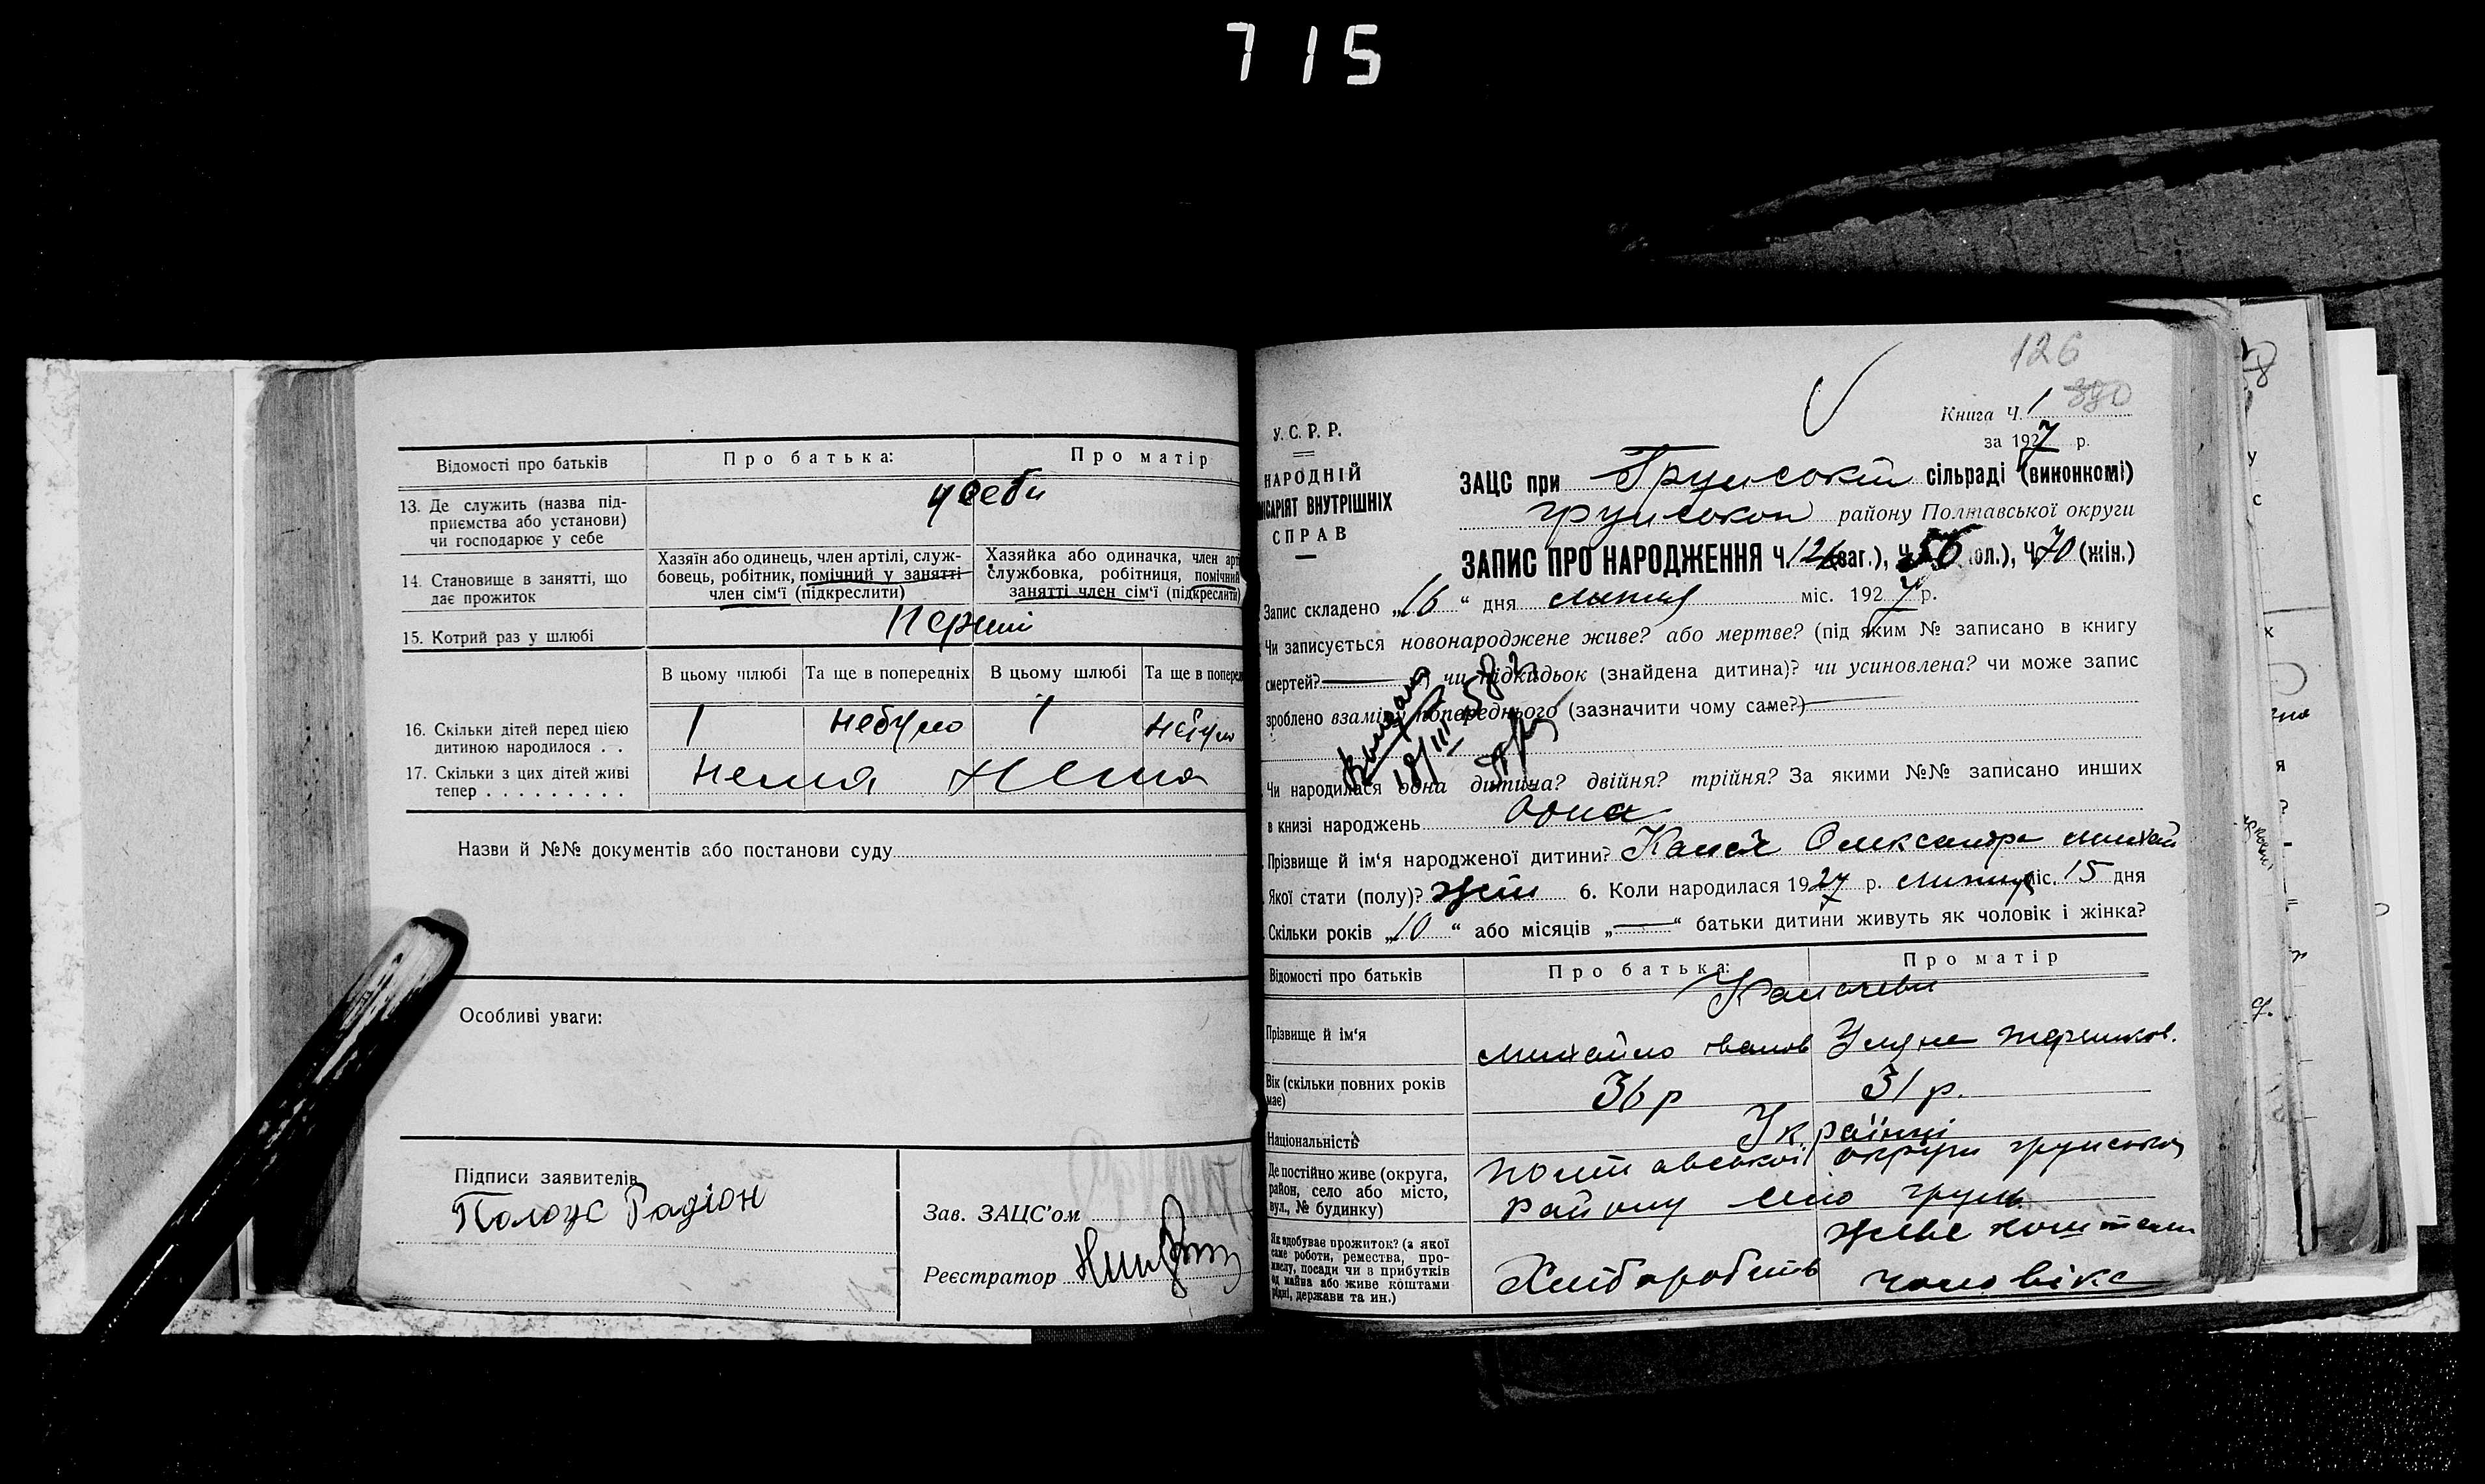 715
Відомості про батьків
Про батька:
Про матір
13. Де служить (назва під-
приємства або установи)
чи господарює у себе
у себе
14. Становище в занятті, що
дає прожиток
Хазяїн або одинець, член артілі, служ-
бовець, робітник, помічний у занятті
член сім'ї (підкреслити)
Хазяйка або одиначка, член арті
службовка, робітниця, помічний
занятті член сім'ї (підкреслити)
15. Котрий раз у шлюбі
Перший
В цьому шлюбі
Та ще в попередніх
В цьому шлюбі
Та ще в поперед
16. Скільки дітей перед цією
дитиною народилося . .
1
небуло
1
небуло
17. Скільки з цих дітей живі
тепер . . . . . . . . .
нема
нема
Назви й №№ документів або постанови суду
Особливі уваги:
Підписи заявителів
Полоус Радіон
Зав. ЗАЦС'ом
Реєстратор
126
390
Книга Ч. 1
за 1927 р.
У. С. Р. Р.
НАРОДНІЙ
ІСАРІЯТ ВНУТРІШНІХ
СПРАВ
ЗАЦС при Грунській сільраді (виконкомі)
Грунського району Полтавської округи
ЗАПИС ПРО НАРОДЖЕННЯ Ч. 126 (заг.), Ч. 56 (чол.), Ч. 70 (жін.)
Запис складено „16“ дня лютня міс. 1927 р.
Чи записується новонароджене живе? або мертве? (під яким № записано в книгу
смертей? ) чи підкидьок (знайдена дитина)? чи усиновлена? чи може запис
зроблено взамін попереднього (зазначити чому саме?)
18/III
Чи народилася одна дитина? двійня? трійня? За якими №№ записано инших
в книзі народжень одна
Прізвище й ім'я народженої дитини? Олександра Михай
Якої стати (полу)? жін 6. Коли народилася 1927 р. лютня міс. 15 дня
Скільки років „10“ або місяців „—“ батьки дитини живуть як чоловік і жінка?
Відомості про батьків
Про батька:
Про матір
Прізвище й ім'я
Михайло Іванов
Уляна
Вік (скільки повних років
має)
36 р
31 р.
Національність
Українці
Де постійно живе (округа,
район, село або місто,
вул., № будинку)
Полтавської округи Грунського
району село Грунь
Як здобуває прожиток? (з якої
саме роботи, ремества, про-
мислу, посади чи з прибутків
од майна або живе коштами
рідні, держави та ин.)
Хліборобств
живе коштами
чоловіка